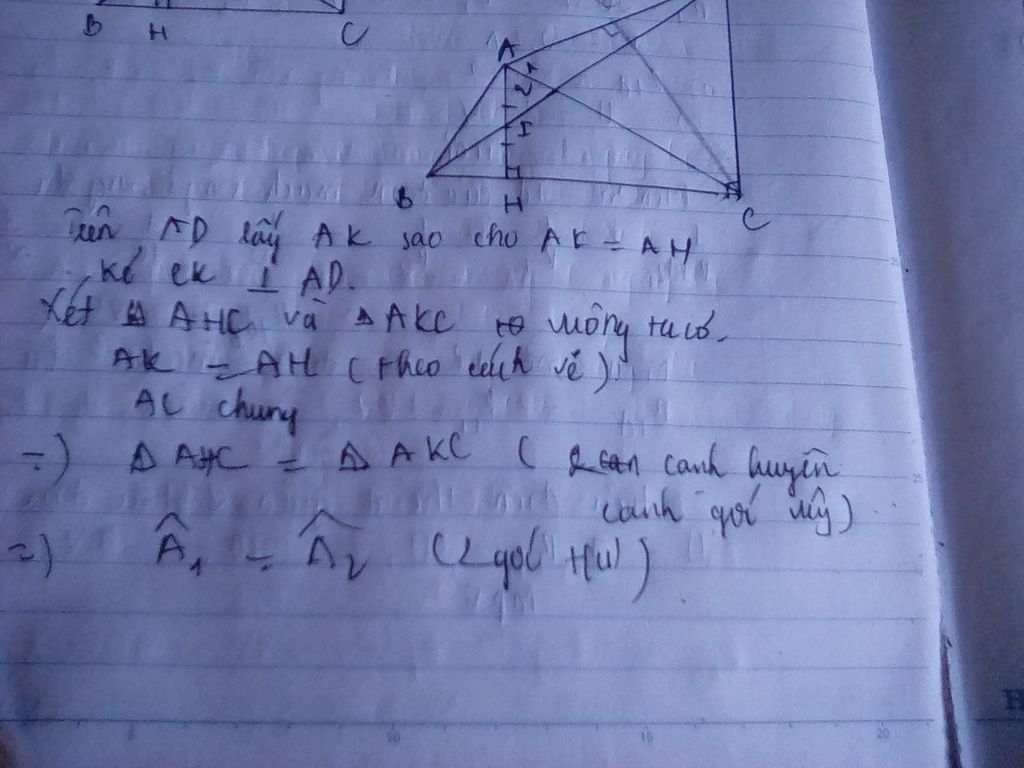 B H C
A
2 1
I
B H C
Trên AD lấy AK sao cho AK = AH
kẻ CK ⊥ AD.
Xét Δ AHC và Δ AKC vuông ta có.
AK = AH (theo cách vẽ).
AC chung
=) Δ AHC = Δ AKC ( cạnh huyền
cạnh góc vuông)
=) Â1 = Â2 (2 góc t/ư)
5 10 15 20
25
H